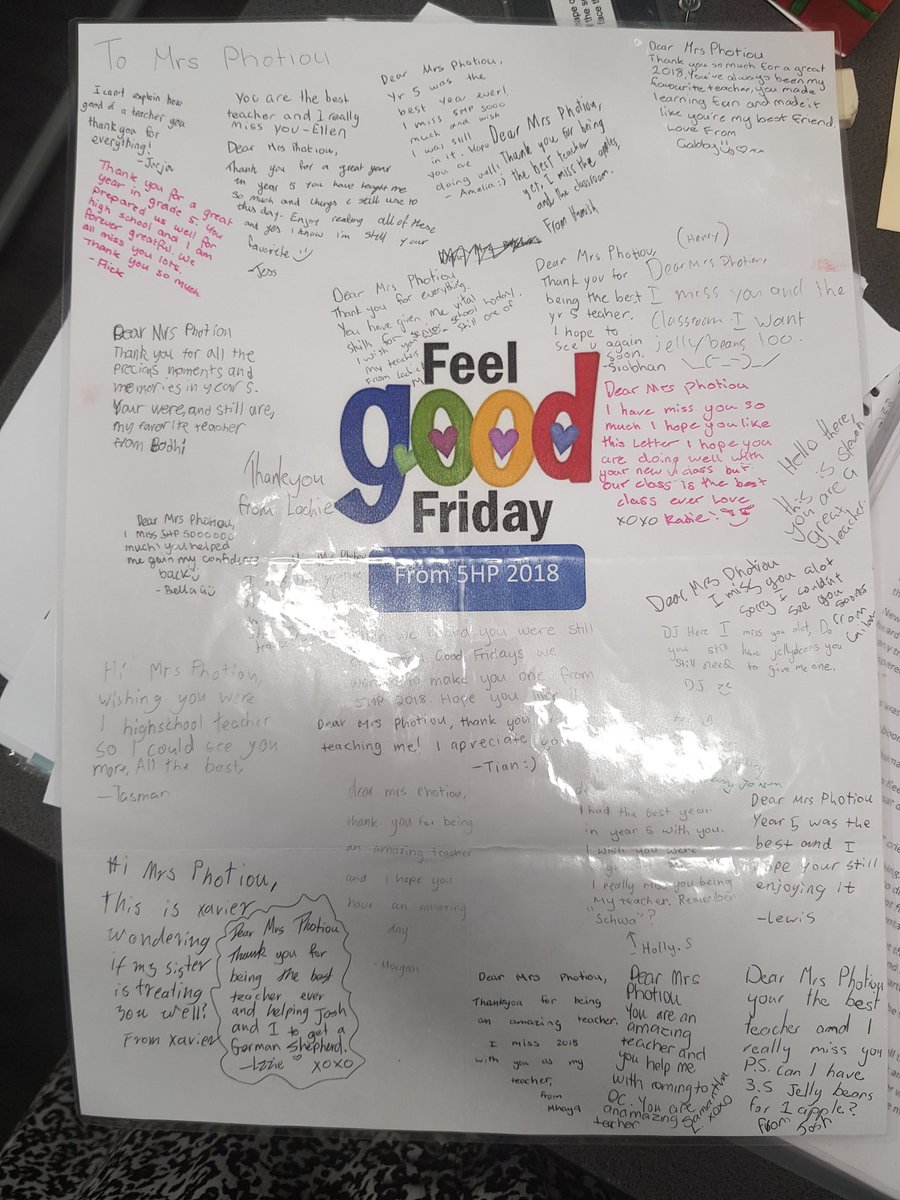 To Mrs Photiou
I can't explain how
good of a teacher you
thank you for
everything!
You are the best
teacher and I really
miss you-Ellen
Dear Mrs Photiou,
yr 5 was the
best year ever!
I miss 5HP sooo
much and wish
I was still
in it. Hope
you are
doing well!
- Amelia :)
Dear Mrs Photiou,
Thank you for being
the best teacher
yet, I miss the apples,
and the classroom.
From Hamish
Dear Mrs Photiou
Thank you so much for a great
2018. You've always been my
favourite teacher, you made
learning fun and made it
like you're my best friend
Love From
Gabby
Thank you for a great
year in grade 5. You
prepared us well for
high school and I am
forever greatful. We
all miss you lots.
Thank you so much
-Flick
Dear Mrs Photiou,
Thank you for a great year
in year 5 you have taught me
so much and things I still use to
this day. Enjoy reading all of these
and yes I know i'm still your
favorite :)
Tess
Dear Mrs Photiou
Thank you for everything.
You have given me vital
skills for school today.
I wish you
still one of
my teacher
From Lachie
Dear Mrs Photiou,
Thank you for
being the best
yr 5 teacher.
I hope to
see u again
soon.
-Siobhan
(Henry)
Dear Mrs Photiou,
I miss you and the
Classroom. I want
jellybeans too.
¯\_(-_-)_/¯
Dear Mrs Photiou
Thank you for all the
precious moments and
memories in year 5.
Your were, and still are,
my favorite teacher
from Bodhi
Feel
good
Friday
From 5HP 2018
Dear Mrs Photiou
I have miss you so
much I hope you like
this Letter I hope you
are doing well with
your new class but
our class is the best
class ever Love
xoxo Katie!
Hello there,
this is
you are a
great
teacher
Thankyou
from Lachie
Dear Mrs Photiou,
I miss 5HP soooooo
much! you helped
me gain my confidence
back
- Bella
Dear Mrs Photiou
I miss you alot
sorry I couldn't
see you
sooner
From
DJ Here I miss you alot, Do
you still have jellybeans you
still need to give me one.
DJ
you were still
Good Fridays we
to make you one from
5HP 2018. Hope you
Hi Mrs Photiou,
wishing you were
I highschool teacher
so I could see you
more, All the best,
-Tasman
Dear Mrs Photiou, thank you
teaching me! I apreciate
-Tian :)
dear mrs photiou,
thank you for being
an amazing teacher
and I hope you
have an amazing
day
- Morgan
I had the best year
in year 5 with you.
I wish you were
I really miss you being
My teacher. Remember
"Schwa"?
- Holly.S
Dear Mrs Photiou
Year 5 was the
best and I
hope your still
enjoying it
-Lewis
Hi Mrs Photiou,
This is xavier
wondering
if my sister
is treating
you well?
From xavier
Dear Mrs Photiou
Thank you for
being the best
teacher ever
and helping Josh
and I to get a
German Shepherd.
-Izzie xoxo
Dear Mrs Photiou,
Thankyou for being
an amazing teacher.
I miss 2018
with you as my
teacher,
From
Dear Mrs
Photiou
You are an
amazing
teacher and
you help me
with coming to
OC. You are
anamazing
teacher
Samantha
xoxo
Dear Mrs Photiou
your the best
teacher and I
really miss you
P.S. can I have
3.5 Jelly beans
for 1 apple?
From Josh